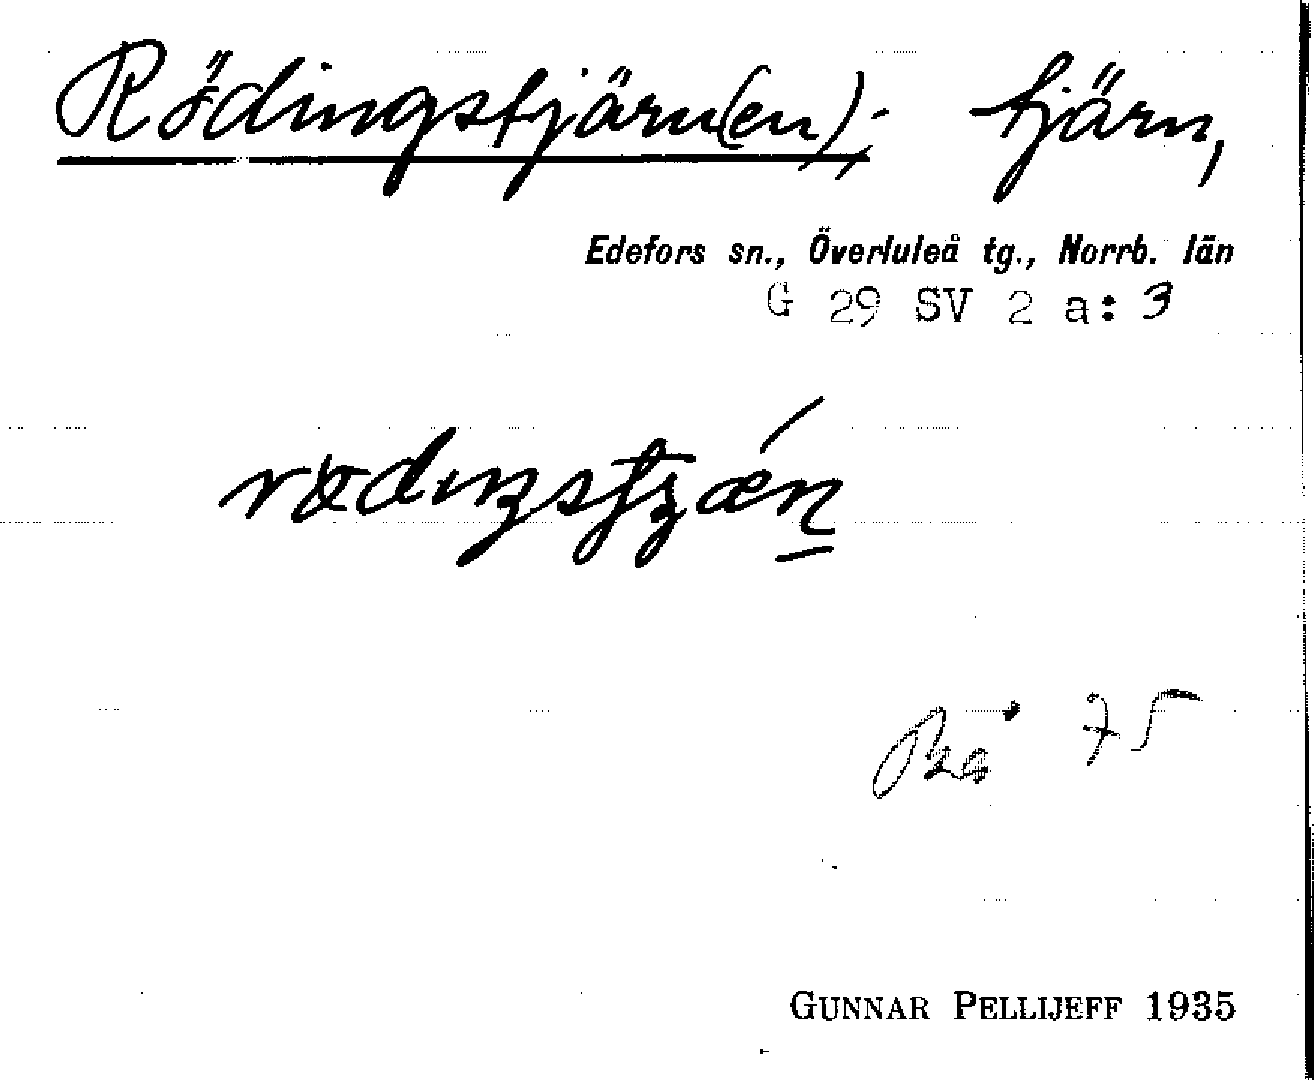 Rödingstjärn(en); tjärn,
Edefors sn., Överluleå tg., Norrb. län
G 29 SV 2 a: 3
75
GUNNAR PELLIJEFF 1935